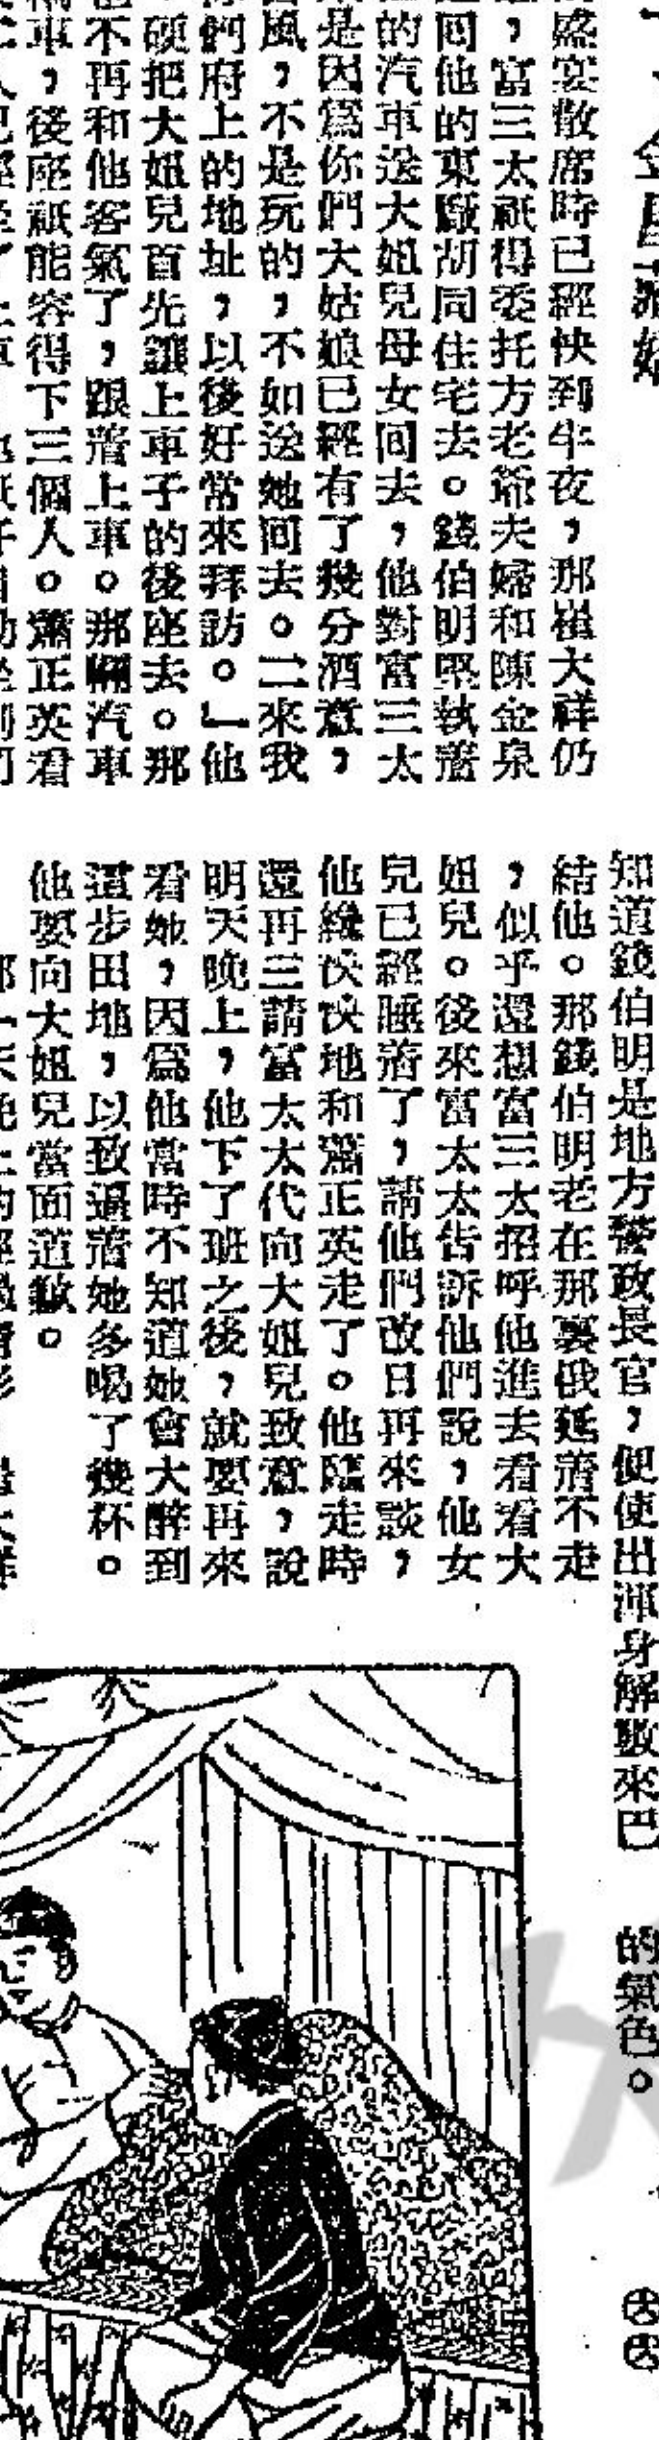 金屋
盛宴散席時已經快到半夜，那崔大祥仍
，富三太祇得委托方老爺夫婦和陳金泉
囘他的東廠胡同住宅去。錢伯明堅執着
的汽車送大姐兒母女囘去，他對富三太
是因爲你們大姑娘已經有了幾分酒意，
風，不是玩的，不如送她囘去。二來我
你們府上的地址，以後好常來拜訪。」他
硬把大姐兒首先讓上車子的後座去。那
不再和他客氣了，跟着上車。那輛汽車
車，後座祇能容得下三個人。蕭正英看
知道錢伯明是地方警政長官，便使出渾身解數來巴
結他。那錢伯明老在那裏俄延着不走
，似乎還想富三太招呼他進去看看大
姐兒。後來富太太告訴他們說，他女
兒已經睡着了，請他們改日再來談，
他纔怏怏地和蕭正英走了。他臨走時
還再三請富太太代向大姐兒致意，說
明天晚上，他下了班之後，就要再來
看她，因爲他當時不知道她會大醉到
這步田地，以致逼着她多喝了幾杯。
他要向大姐兒當面道歉。
的氣色。